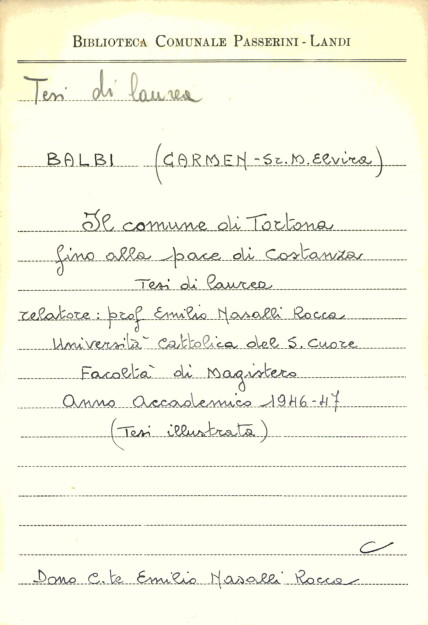 BIBLIOTECA COMUNALE PASSERINI - LANDI
Tesi di laurea
BALBI (CARMEN - Sr. M. Elvira)
Il comune di Tortona
fino alla pace di Costanza
Tesi di laurea
relatore: prof Emilio Nasalli Rocca
Università Cattolica del S. Cuore
Facoltà di Magistero
Anno Accademico 1946-47
(Tesi illustrata)
C
Dono C.te Emilio Nasalli Rocca